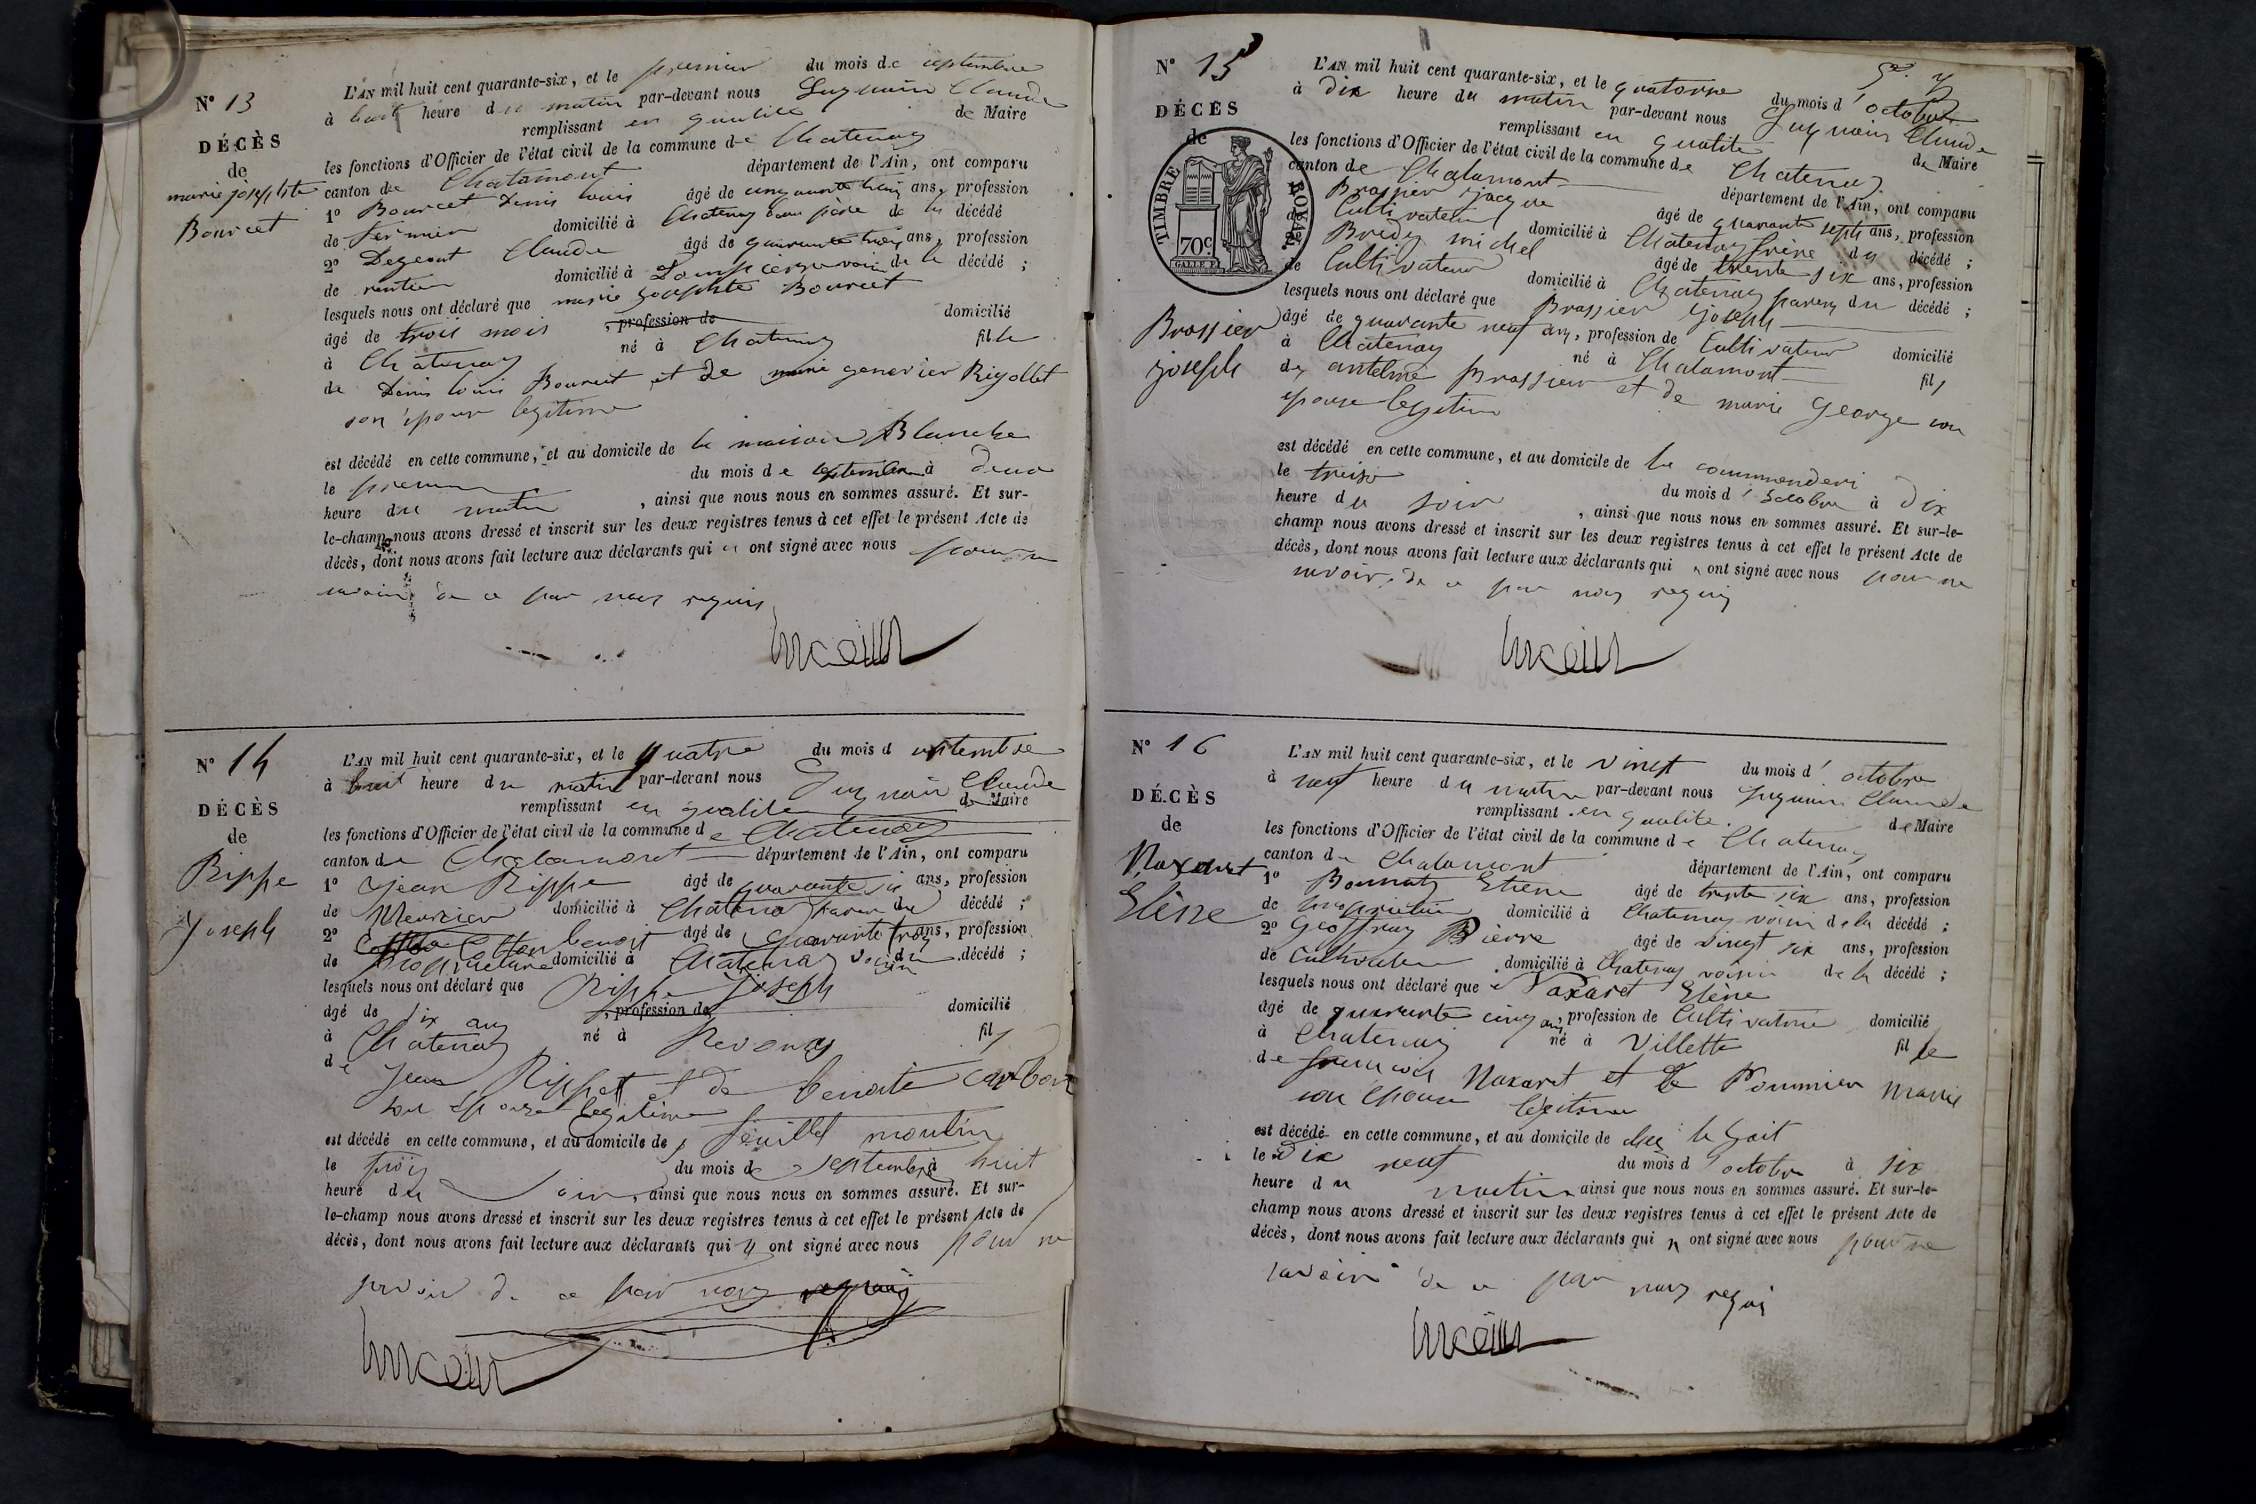 N° 13
DÉCÈS
de
marie josephte
Bourcet
L'AN mil huit cent quarante-six, et le premier du mois de septembre
à huit heure du matin par-devant nous Luquain Claude
remplissant en qualité de Maire
les fonctions d'Officier de l'état civil de la commune de Chatenay
canton de Chalamont département de l'Ain, ont comparu
1° Bourcet Denis louis âgé de cinquante trois ans, profession
de fermier domicilié à Chatenay père de la décédé
2° Degeout Claude âgé de quarante trois ans, profession
de rentier domicilié à Dompierre voisin de la décédé ;
lesquels nous ont déclaré que marie josephte Bourcet
âgé de trois mois , profession de domicilié
à Chatenay né à Chatenay fille
de Denis louis Bourcet et de marie genevier Rigollet
son épouse légitime
est décédé en cette commune, et au domicile de la maison Blanche
le premier du mois de septembre à deux
heure du matin , ainsi que nous nous en sommes assuré. Et sur-
le-champ nous avons dressé et inscrit sur les deux registres tenus à cet effet le présent Acte de
décès, dont nous avons fait lecture aux déclarants qui n ont signé avec nous pour ne
savoir de ce par nous requis
N° 14
DÉCÈS
de
Rippe
Joseph
L'AN mil huit cent quarante-six, et le quatre du mois d septembre
à huit heure du matin par-devant nous Luquain Claude
remplissant en qualité de Maire
les fonctions d'Officier de l'état civil de la commune de Chatenay
canton de Chalamont département de l'Ain, ont comparu
1° Jean Rippe âgé de quarante six ans, profession
de Meunier domicilié à Chatenay parent du décédé ;
2° benoit âgé de quarante trois ans, profession
de propriétaire domicilié à Chatenay voisin du décédé ;
lesquels nous ont déclaré que Rippe joseph
âgé de dix ans , profession de domicilié
à Chatenay né à fils
de Jean Rippe et de benoite
son épouse légitime
est décédé en cette commune, et au domicile de moulin
le trois du mois de septembre à huit
heure du soir, ainsi que nous nous en sommes assuré. Et sur-
le-champ nous avons dressé et inscrit sur les deux registres tenus à cet effet le présent Acte de
décès, dont nous avons fait lecture aux déclarants qui n ont signé avec nous pour ne
savoir de ce par nous requis
N° 15
DÉCÈS
de
TIMBRE ROYAL
70c
Brossier
joseph
L'AN mil huit cent quarante-six, et le quatorze du mois d'octobre
à dix heure du matin par-devant nous Luquain Claude
remplissant en qualité de Maire
les fonctions d'Officier de l'état civil de la commune de Chatenay
canton de Chalamont département de l'Ain, ont comparu
Brossier jacque âgé de quarante sept ans, profession
de Cultivateur domicilié à Chatenay frère du décédé ;
Bredy michel âgé de trente six ans, profession
de Cultivateur domicilié à Chatenay parent du décédé ;
lesquels nous ont déclaré que Brossier joseph
âgé de quarante neuf ans, profession de Cultivateur domicilié
à Chatenay né à Chalamont fils
de antelme Brossier et de marie George son
epouse legitime
est décédé en cette commune, et au domicile de la commenderi
le treise du mois d'octobre à dix
heure du soir , ainsi que nous nous en sommes assuré. Et sur-le-
champ nous avons dressé et inscrit sur les deux registres tenus à cet effet le présent Acte de
décès, dont nous avons fait lecture aux déclarants qui n ont signé avec nous pour ne
savoir, de ce par nous requis
N° 16
DÉCÈS
de
Naxaret
Elène
L'AN mil huit cent quarante-six, et le vingt du mois d'octobre
à neuf heure du matin par-devant nous Luquain Claude
remplissant en qualité de Maire
les fonctions d'Officier de l'état civil de la commune de Chatenay
canton de Chalamont département de l'Ain, ont comparu
1° Bonnaty Etiene âgé de trente six ans, profession
de propriétaire domicilié à Chatenay voisin de la décédé ;
2° Geoffray Pierre âgé de vingt six ans, profession
de Cultivateur domicilié à Chatenay voisin de la décédé ;
lesquels nous ont déclaré que Naxaret Elène
âgé de quarante cinq ans, profession de Cultivatrice domicilié
à Chatenay né à Villette fille
de francois Naxaret et de Pommier Marie
son epouse légitime
est décédé en cette commune, et au domicile de
le dix neuf du mois d'octobre à six
heure du matin ainsi que nous nous en sommes assuré. Et sur-le-
champ nous avons dressé et inscrit sur les deux registres tenus à cet effet le présent Acte de
décès, dont nous avons fait lecture aux déclarants qui n ont signé avec nous pour ne
savoir de ce par nous requis